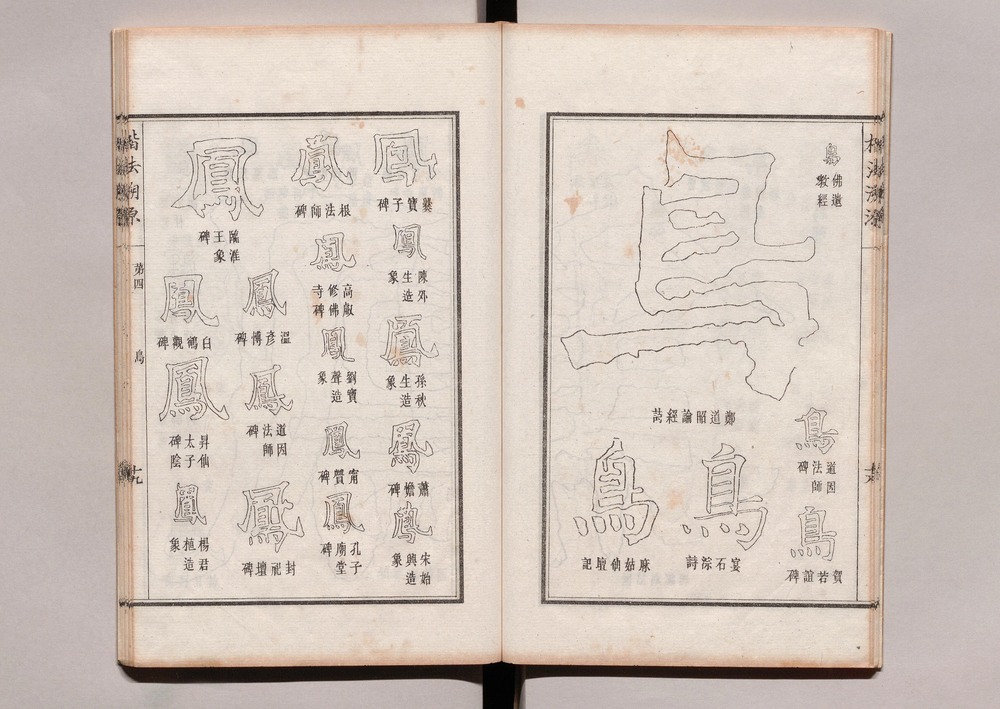 鳥
佛遺
教經
鳥
道因
法師
碑
鳥
賀若誼碑
鳥
鄭道昭論經詩
鳥
宴石淙詩
鳥
麻姑仙壇記
鳳
爨寶子碑
鳳
陳外
生造
象
鳳
孫秋
生造
象
鳳
蕭憺碑
鳳
宋始
興造
象
鳳
根法師碑
鳳
高叡
修佛
寺碑
鳳
劉寶
聲造
象
鳳
甯贙碑
鳳
孔子
廟堂
碑
鳳
臨淮
王象
碑
鳳
溫彥博碑
鳳
道因
法師
碑
鳳
封祀壇碑
鳳
白鶴觀碑
鳳
昇仙
太子
碑陰
鳳
楊君
植造
象
楷法溯源
第四
鳥
九